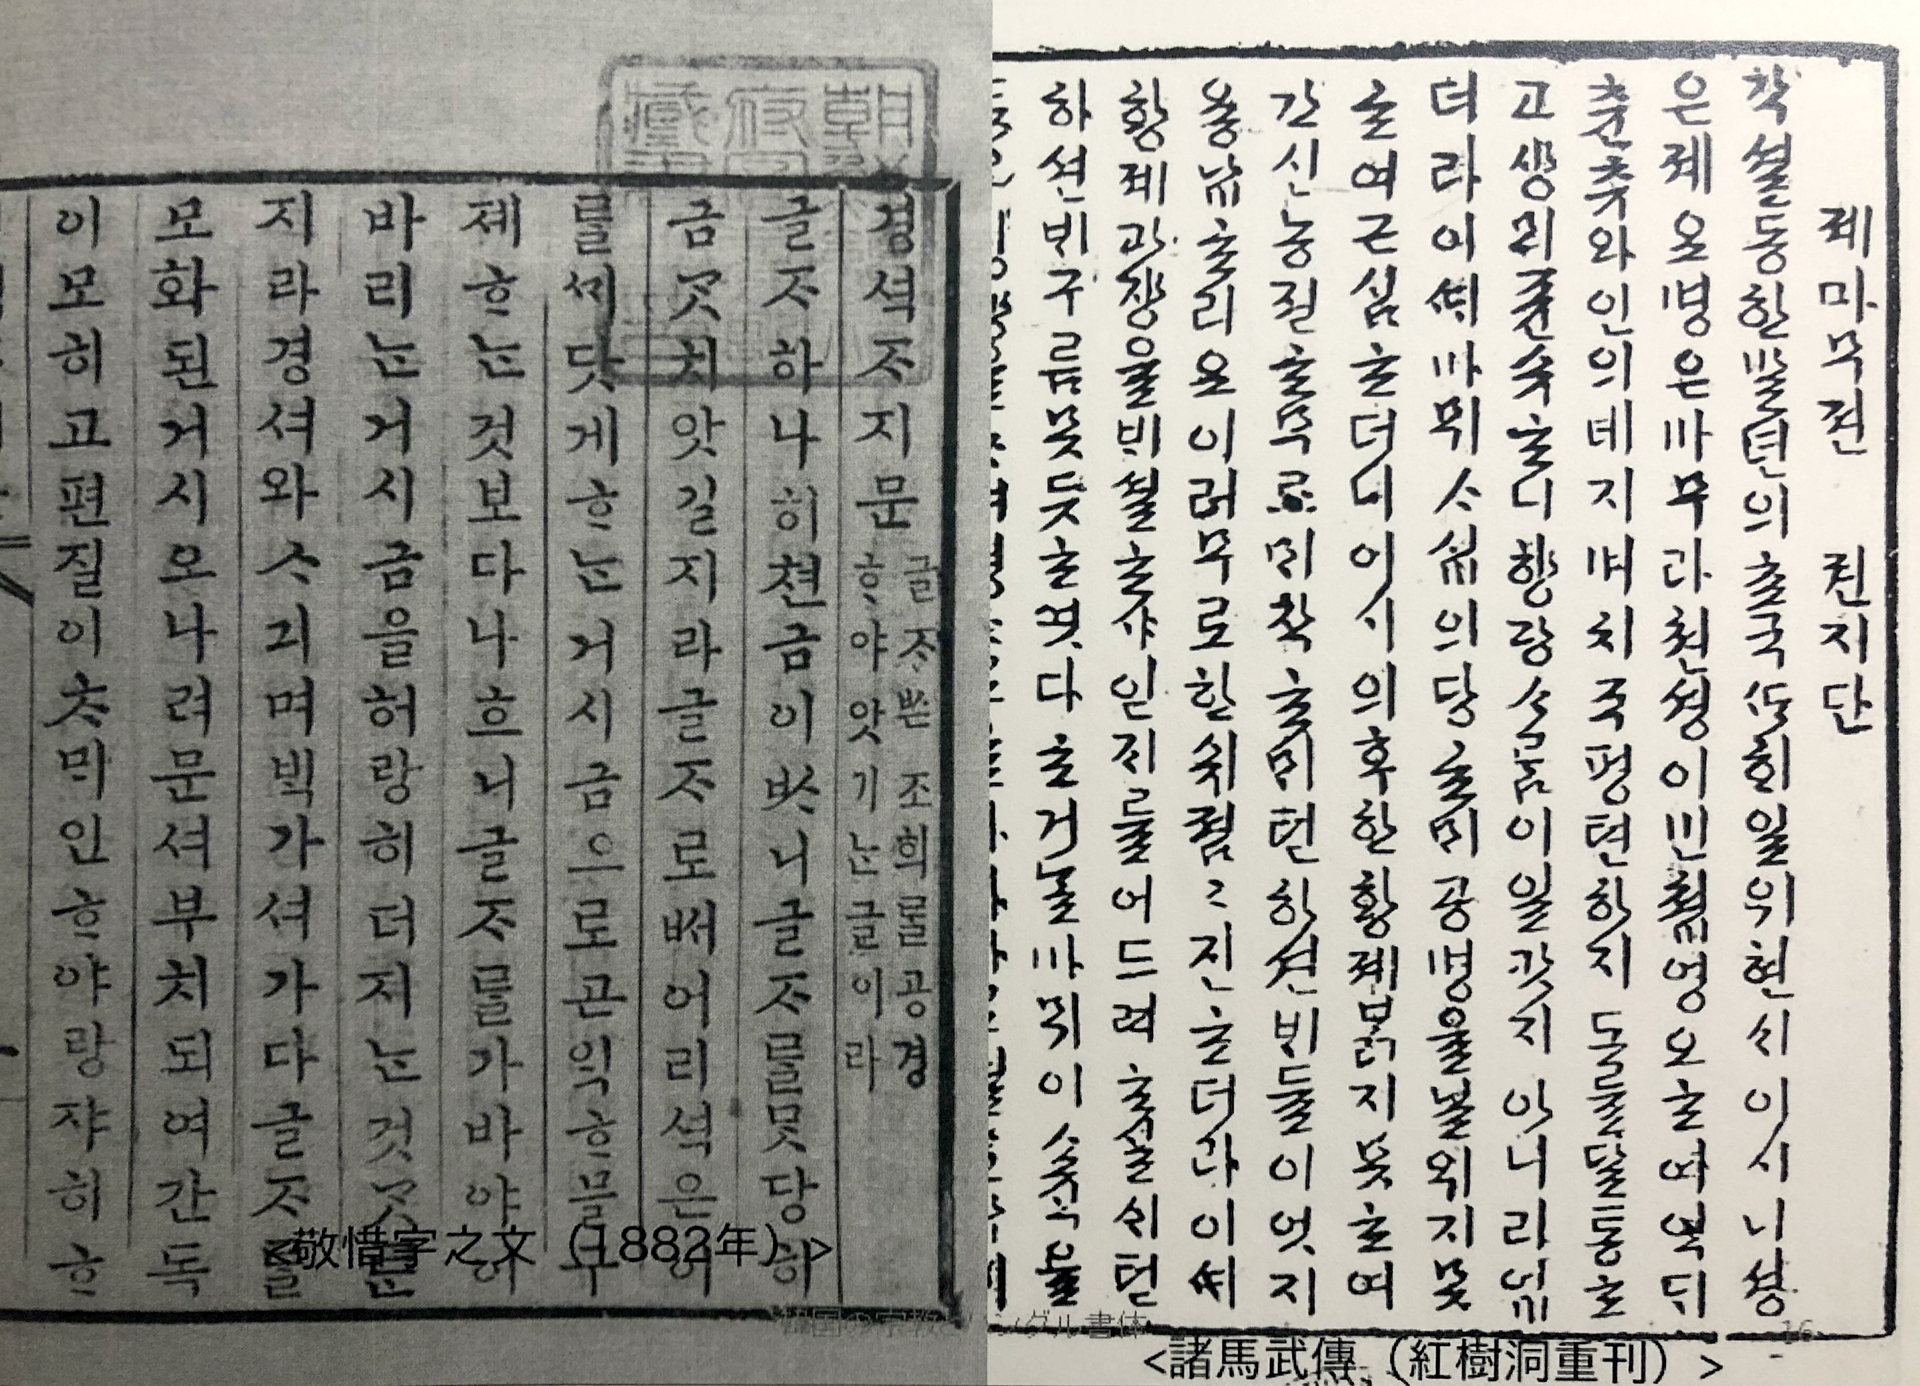 졔마무젼 권지단
각셜동한 의 국 일위현시이시니셩
은졔오명은마무라쳔셩이민쳡영오ᄒᆞ며
츈츄와인의녜지며치국평텬하지도를달통ᄒᆞ
고 향랑 이일갓지아니리업
더라이ᄯᅢ마뮈ᄉᆞ십의당ᄒᆞᄆᆡ공명을불외지못
ᄒᆞ여근심ᄒᆞ더니이시의후한황졔ᄆᆞᆰ지못ᄒᆞ여
간신농질ᄒᆞ무로ᄆᆡ작ᄒᆞᄆᆡ텬하션ᄇᆡ들이엇지
용납ᄒᆞ리오이러무로한실졈〻진ᄒᆞ더라이ᄯᅢ
황졔과쟝을ᄇᆡ셜ᄒᆞ야인ᄌᆡ를어드려ᄒᆞ실ᄉᆡ텬
하션ᄇᆡ구름못듯ᄒᆞ엿다ᄒᆞ거늘마뮈이 을
<諸馬武傳（紅樹洞重刊）>
16
경셕ᄌᆞ지문 글ᄌᆞ쁜조희ᄅᆞᆯ공경
ᄒᆞ야앗기ᄂᆞᆫ글이라
글ᄌᆞ하나히쳔금이ᄡᆞ니글ᄌᆞᄅᆞᆯ못당히
금ᄀᆞᆺ치앗길지라글ᄌᆞ로ᄡᅥ어리셕은이
ᄅᆞᆯᄭᆡ닷게ᄒᆞᄂᆞᆫ거시금으로곤익ᄒᆞ믈구
졔ᄒᆞᄂᆞᆫ것보다나흐니글ᄌᆞᄅᆞᆯ가바야이
바리ᄂᆞᆫ거시금을허랑히더지ᄂᆞᆫ것ᄀᆞᆺᄒᆞᆫ
지라경셔와ᄉᆞ긔며ᄇᆡᆨ가셔가다글ᄌᆞᄅᆞᆯ
모화된거시오나려문셔부치되여간독
이모히고편질이ᄎᆞᄆᆡ인ᄒᆞ야랑쟈히ᄒᆞ
<敬惜字之文（1882年）>
韓国の宗教とハングル書体